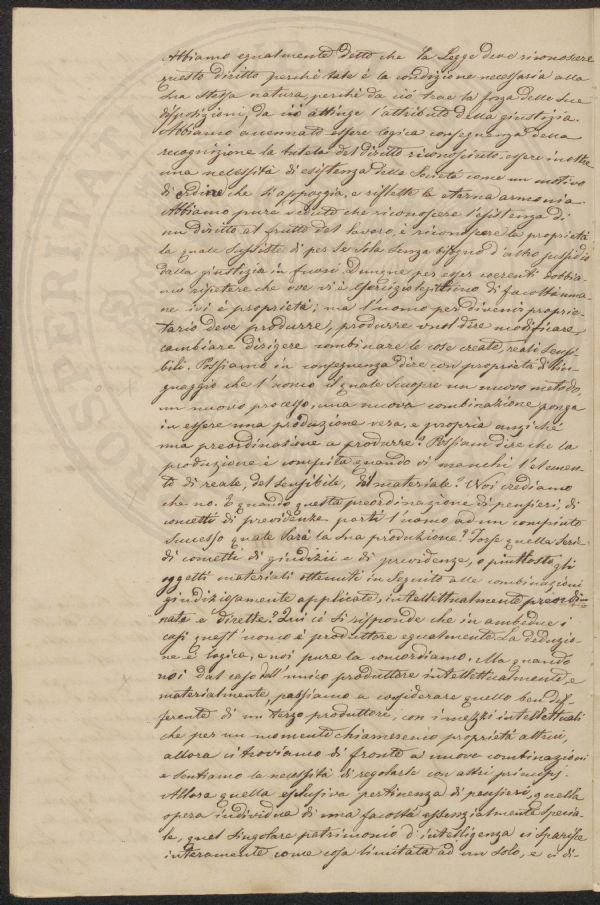 Abbiamo egualmente detto che la Legge deve riconoscere
questo diritto perchè tale è la condizione necessaria alla
sua stessa natura, perchè da ciò trae la forza delle sue
disposizioni, da ciò attinge l'attributo della giustizia.
Abbiamo accennato essere logica conseguenza della
recognizione la tutela del diritto riconosciuto, essere inoltre
una necessità di esistenza della Società come un motivo
di ordine che s'appoggia, e riflette la eterna armonia
Abbiamo pure veduto che riconoscere l'esistenza di
un diritto al frutto del lavoro, è riconoscere la proprietà
la quale sussiste di per se sola senza bisogno d'altro sussidio
dalla giustizia in fuori. Dunque per esser coerenti dobbia-
mo ripetere che ove vi è esercizio legittimo di facoltà uma-
ne ivi è proprietà; ma l'uomo per divenir proprie-
tario deve produrre, produrre vuol dire modificare
cambiare dirigere combinare le cose create, reali sensi-
bili. Possiamo in conseguenza dire con proprietà di lin-
guaggio che l'uomo il quale scuopre un nuovo metodo,
un nuovo processo, una nuova combinazione ponga
in essere una produzione vera, e propria anzichè
una preordinazione a produrre? Possiam dire che la
produzione è compiuta quando vi manchi l'elemen-
to di reale, del sensibile, di materiale? Noi crediamo
che no. E quando questa preordinazione di pensieri, di
concetti di previdenze porti l'uomo ad un compiuto
successo quale sarà la sua produzione? Forse quella serie
di concetti di giudizii e di previdenze, o piuttosto gli
oggetti materiali ottenuti in seguito alle combinazioni
giudiziosamente applicate, intellettualmente preordi-
nate e dirette? Qui ci si risponde che in ambedue i
casi quest'uomo è produttore egualmente. La deduzio-
ne è logica, e noi pure la concordiamo. Ma quando
noi dal caso dell'unico produttore intellettualmente, e
materialmente, passiamo a considerare quello ben dif-
ferente di un terzo produttore, con i mezzi intellettuali
che per un momento chiameremo proprietà altrui,
allora ci troviamo di fronte a nuove combinazioni
e sentiamo la necessità di regolarle con altri principj.
Allora quella esclusiva pertinenza di pensieri, quella
opera individua di una facoltà essenzialmente specia-
le, quel singolare patrimonio d'intelligenza ci sparisce
interamente come cosa limitata ad un solo, e ci di-